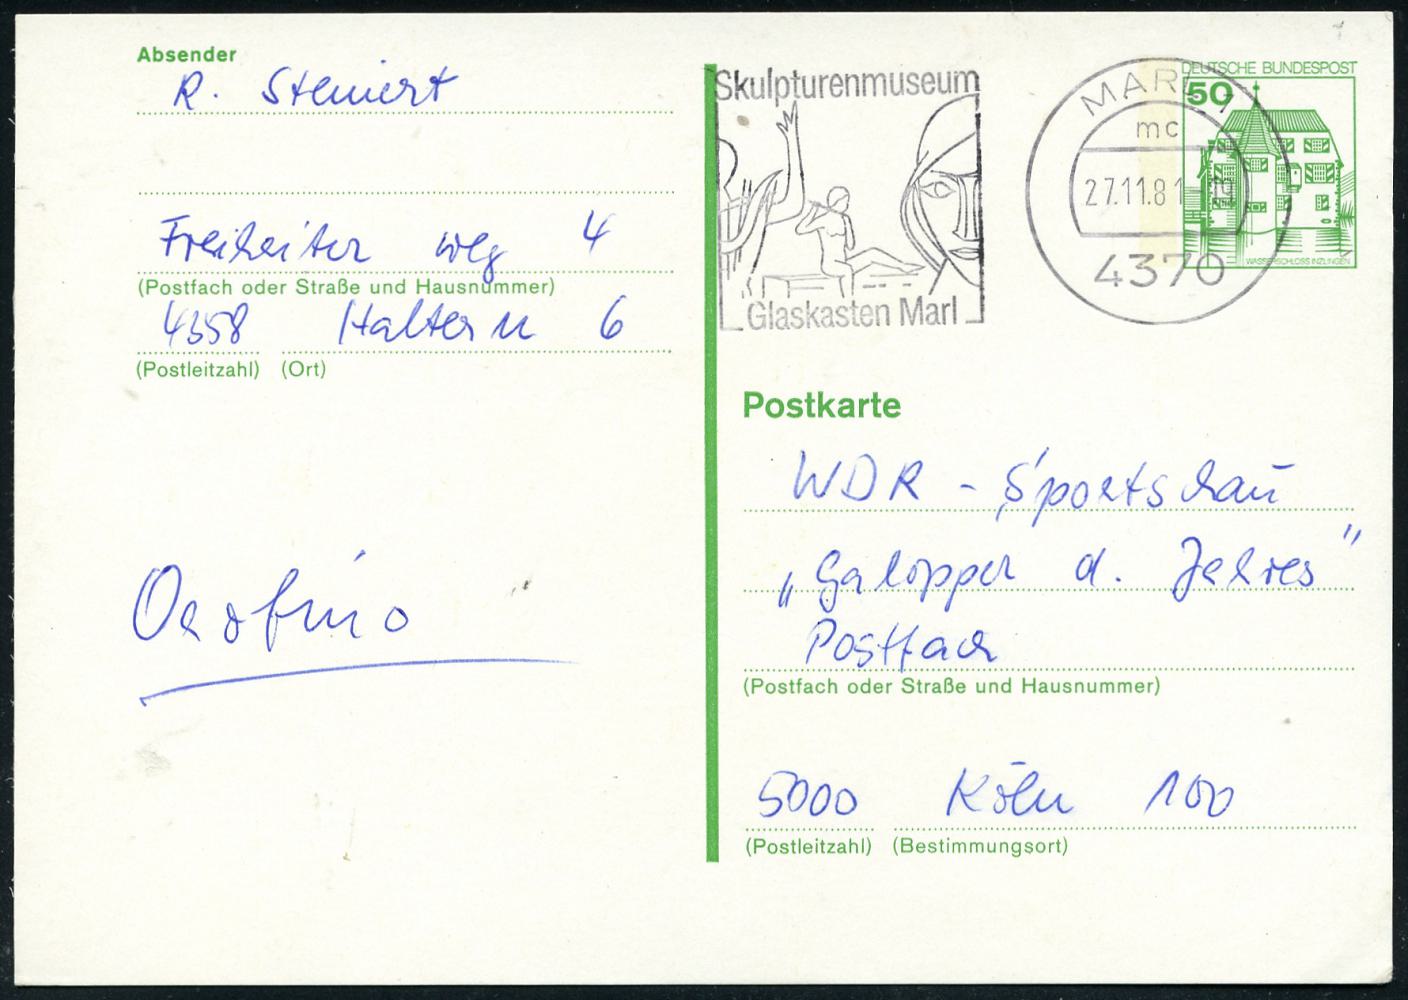 Absender
R. Steinert
Freiheiter Weg 4
(Postfach oder Straße und Hausnummer)
4358 Haltern 6
(Postleitzahl) (Ort)
Skulpturenmuseum
Glaskasten Marl
MARL 1
mc
27.11.81
4370
DEUTSCHE BUNDESPOST
50
WASSERSCHLOSS INZLINGEN
Postkarte
WDR - Sportschau
„Galopper d. Jahres"
Postfach
(Postfach oder Straße und Hausnummer)
5000 Köln 100
(Postleitzahl) (Bestimmungsort)
Orofino